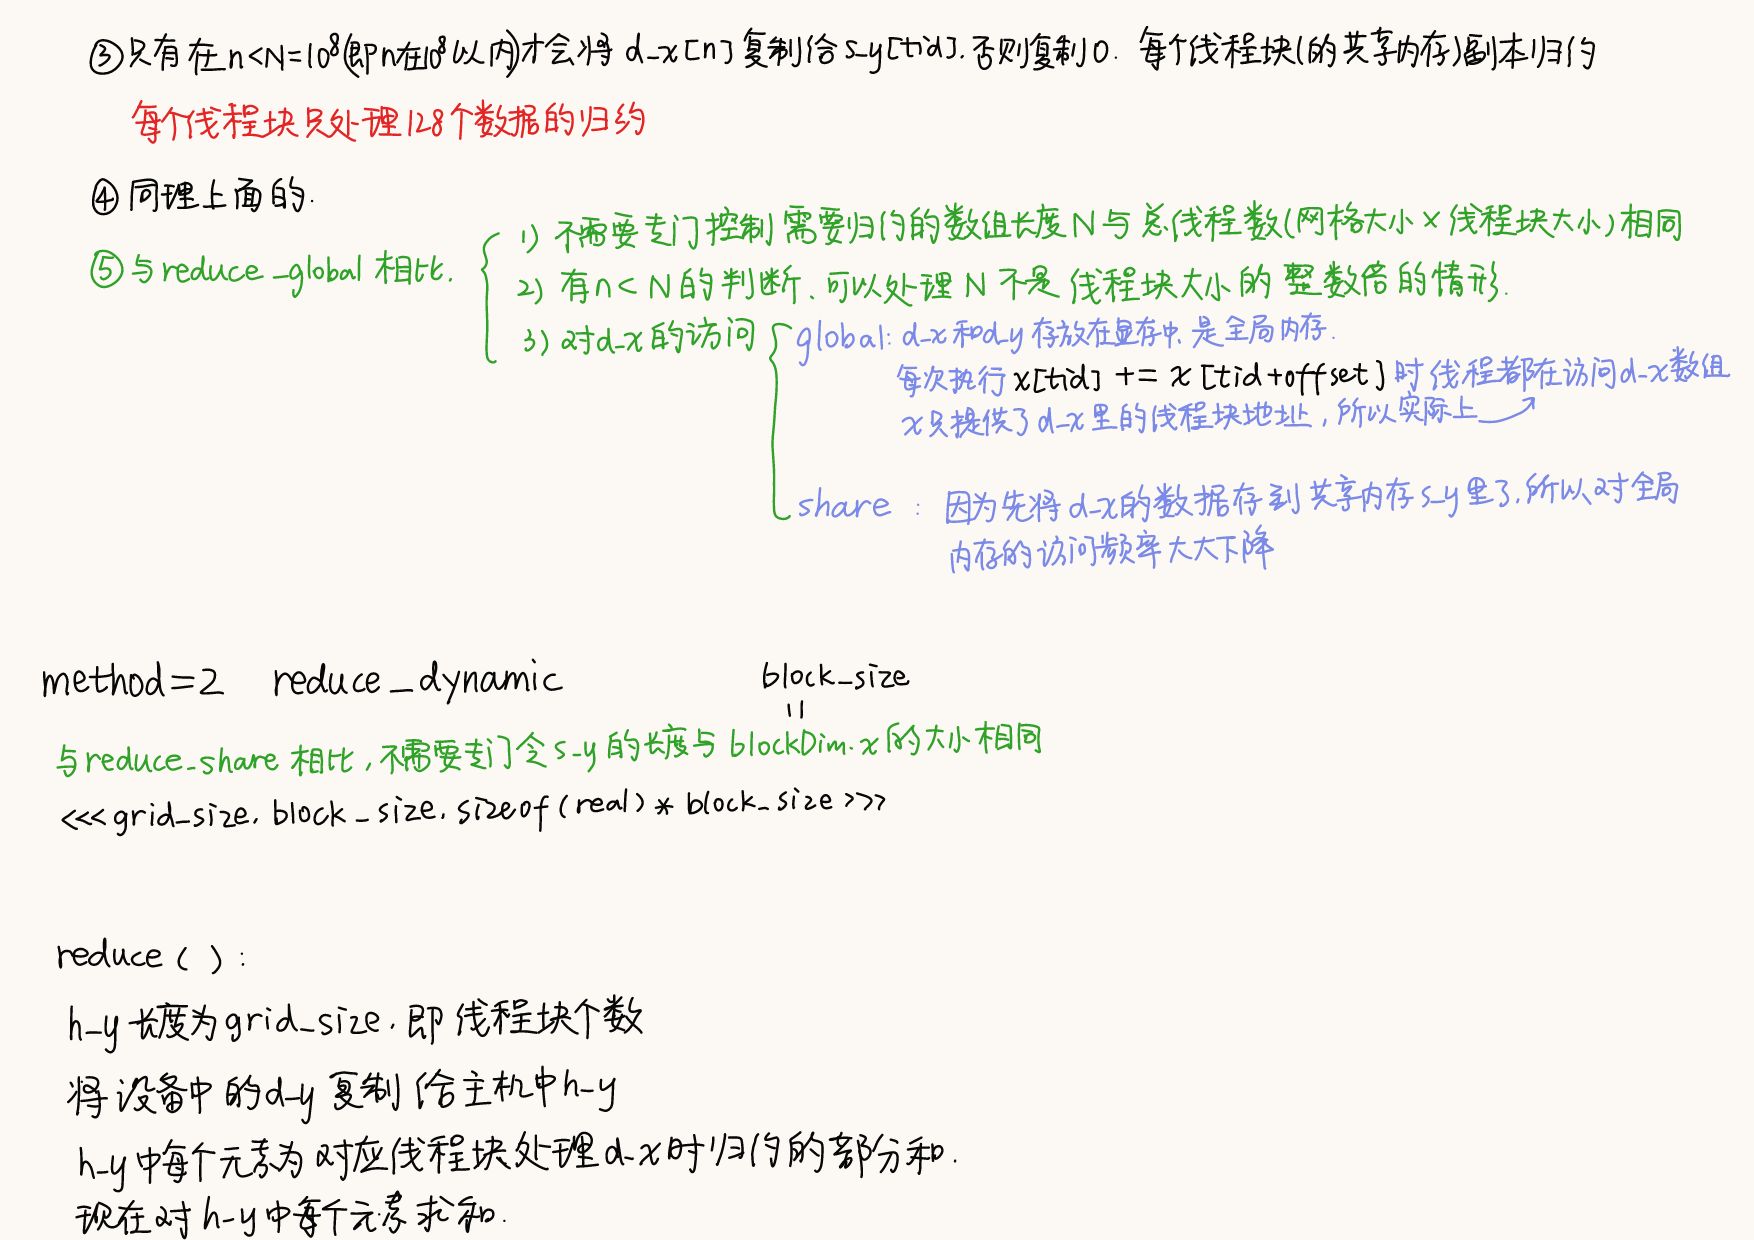 ③只有在n<N=10⁸(即n在10⁸以内)才会将 d_x[n]复制给s_y[tid].否则复制0. 每个线程块(的共享内存)副本归约
每个线程块只处理128个数据的归约
④同理上面的.
⑤与reduce_global 相比.
1) 不需要专门控制需要归约的数组长度N与总线程数(网格大小×线程块大小)相同
2) 有n<N的判断、可以处理N不是线程块大小的整数倍的情形.
3) 对d_x的访问
global: d_x和d_y存放在显存中.是全局内存.
每次执行 x[tid] += x[tid+offset]时线程都在访问d_x数组
x只提供了d_x里的线程块地址,所以实际上
share : 因为先将d_x的数据存到共享内存s_y里了.所以对全局
内存的访问频率大大下降
method=2 reduce_dynamic
block_size
=
与reduce_share 相比,不需要专门令s_y的长度与blockDim.x的大小相同
<<<grid_size, block_size, sizeof(real)*block_size>>>
reduce():
h_y长度为grid_size.即线程块个数
将设备中的d_y复制给主机中h_y
h_y中每个元素为对应线程块处理d_x时归约的部分和.
现在对h_y中每个元素求和.